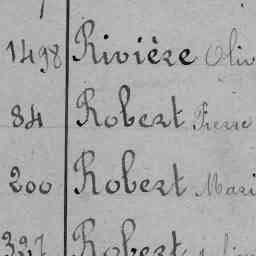 1498 Rivière Oliv
84 Robert Pierre
200 Robert Mari
327 Robert